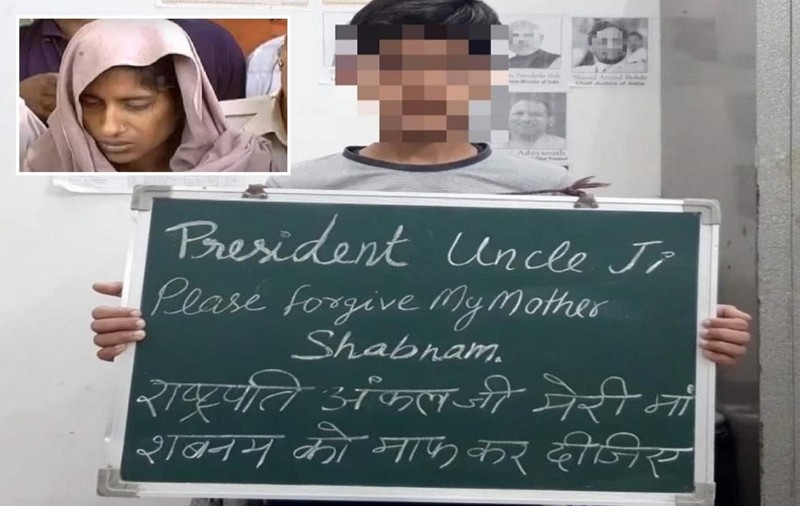 President Uncle Ji
Please forgive My Mother
Shabnam.
राष्ट्रपति अंकल जी मेरी मां
शबनम को माफ कर दीजिए
Sharad Arvind Bobde
Chief Justice of India
Adityanath